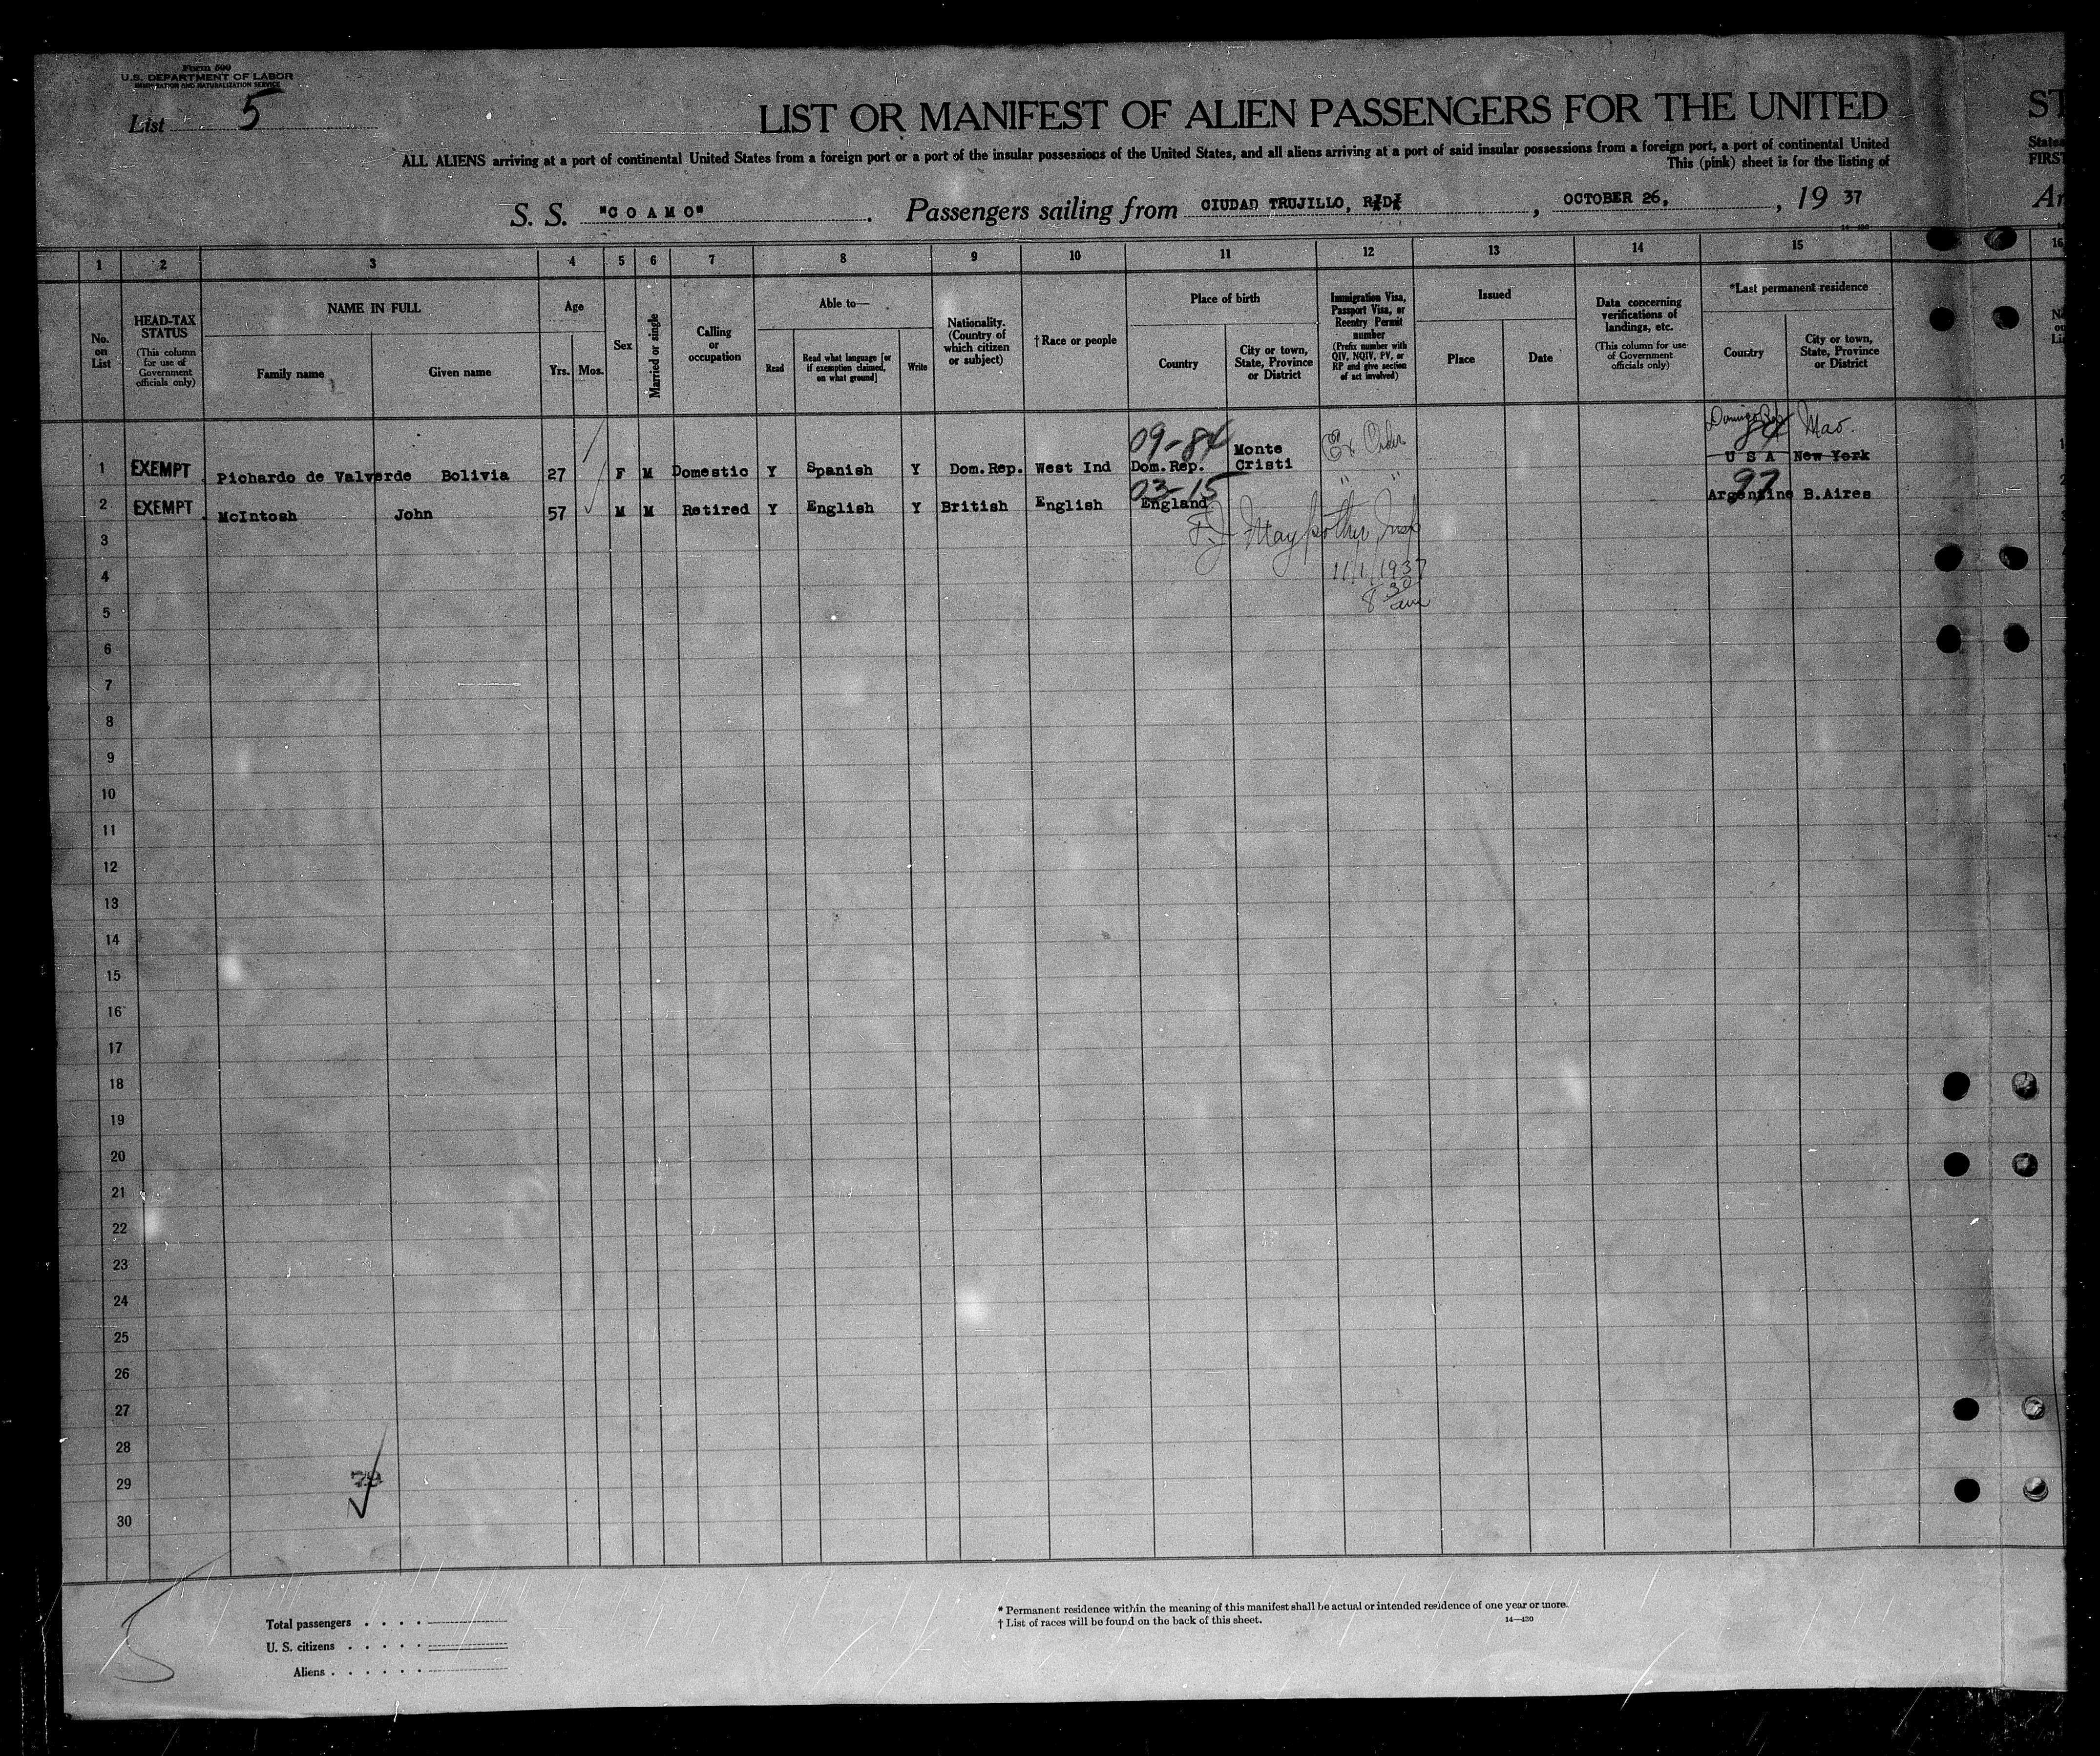 Form 500
U.S. DEPARTMENT OF LABOR
IMMIGRATION AND NATURALIZATION SERVICE
List 5
LIST OR MANIFEST OF ALIEN PASSENGERS FOR THE UNITED
ST
ALL ALIENS arriving at a port of continental United States from a foreign port or a port of the insular possessions of the United States, and all aliens arriving at a port of said insular possessions from a foreign port, a port of continental United
States
This (pink) sheet is for the listing of
FIRST
S. S. "COAMO". Passengers sailing from CIUDAD TRUJILLO, R.D., OCTOBER 26, , 19 37
Ar
1 2 3 4 5 6 7 8 9 10 11 12 13 14 15 16
No. on List
HEAD-TAX STATUS
(This column for use of Government officials only)
NAME IN FULL
Family name
Given name
Age
Yrs. Mos.
Sex
Married or single
Calling or occupation
Able to—
Read
Read what language [or if exemption claimed, on what ground]
Write
Nationality. (Country of which citizen or subject)
†Race or people
Place of birth
Country
City or town, State, Province or District
Immigration Visa, Passport Visa, or Reentry Permit number
(Prefix number with QIV, NQIV, PV, or RP and give section of act involved)
Issued
Place
Date
Data concerning verifications of landings, etc.
(This column for use of Government officials only)
*Last permanent residence
Country
City or town, State, Province or District
09-84 Ex Order 84 Mao.
1 EXEMPT Pichardo de Valverde Bolivia 27 F M Domestic Y Spanish Y Dom.Rep. West Ind Dom.Rep. Monte Cristi U S A New York
03-15 " " 97
2 EXEMPT McIntosh John 57 M M Retired Y English Y British English England Argentine B.Aires
3
4 11/1/1937
5 8 30 am
6
7
8
9
10
11
12
13
14
15
16
17
18
19
20
21
22
23
24
25
26
27
28
29
30
Total passengers
U. S. citizens
Aliens
* Permanent residence within the meaning of this manifest shall be actual or intended residence of one year or more.
† List of races will be found on the back of this sheet.
14—430
5